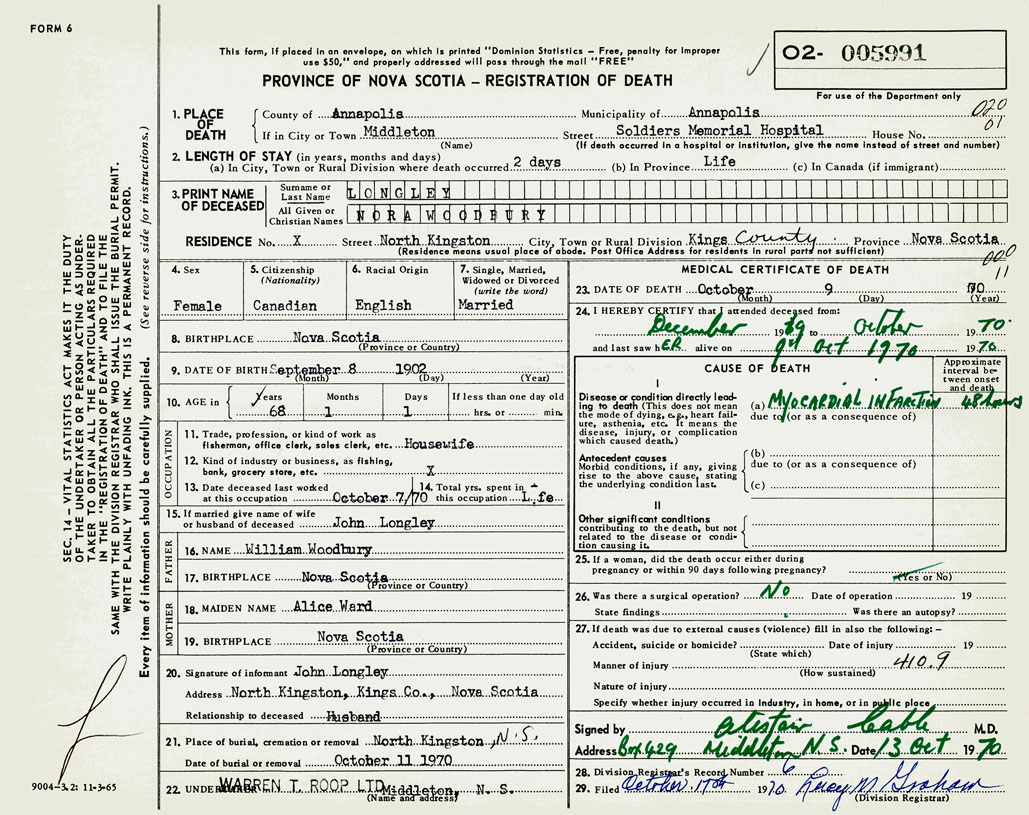 FORM 6
This form, if placed in an envelope, on which is printed "Dominion Statistics — Free, penalty for improper
use $50," and properly addressed will pass through the mail "FREE"
PROVINCE OF NOVA SCOTIA — REGISTRATION OF DEATH
02- 005991
For use of the Department only
020
01
1. PLACE OF DEATH
County of Annapolis Municipality of Annapolis
If in City or Town Middleton (Name) Street Soldiers Memorial Hospital House No.
(If death occurred in a hospital or institution, give the name instead of street and number)
2. LENGTH OF STAY (in years, months and days)
(a) In City, Town or Rural Division where death occurred 2 days (b) In Province Life (c) In Canada (if immigrant)
3. PRINT NAME OF DECEASED
Surname or Last Name LONGLEY
All Given or Christian Names NORA WOODBURY
RESIDENCE No. X Street North Kingston City, Town or Rural Division Kings County Province Nova Scotia
(Residence means usual place of abode. Post Office Address for residents in rural parts not sufficient)
000
11
4. Sex
Female
5. Citizenship
(Nationality)
Canadian
6. Racial Origin
English
7. Single, Married,
Widowed or Divorced
(write the word)
Married
8. BIRTHPLACE Nova Scotia
(Province or Country)
9. DATE OF BIRTH September 8 1902
(Month) (Day) (Year)
10. AGE in
Years
68
Months
1
Days
1
If less than one day old
hrs. or min.
OCCUPATION
11. Trade, profession, or kind of work as
fisherman, office clerk, sales clerk, etc. Housewife
12. Kind of industry or business, as fishing,
bank, grocery store, etc. X
13. Date deceased last worked
at this occupation October 7/70
14. Total yrs. spent in
this occupation Life
15. If married give name of wife
or husband of deceased John Longley
FATHER
16. NAME William Woodbury
17. BIRTHPLACE Nova Scotia
(Province or Country)
MOTHER
18. MAIDEN NAME Alice Ward
19. BIRTHPLACE Nova Scotia
(Province or Country)
20. Signature of informant John Longley
Address North Kingston, Kings Co., Nova Scotia
Relationship to deceased Husband
21. Place of burial, cremation or removal North Kingston, N.S.
Date of burial or removal October 11 1970
22. UNDERTAKER WARREN T. ROOP LTD Middleton, N. S.
(Name and address)
MEDICAL CERTIFICATE OF DEATH
23. DATE OF DEATH October 9 70
(Month) (Day) (Year)
24. I HEREBY CERTIFY that I attended deceased from:
December 1969 to October 1970.
and last saw hER alive on 9th Oct 1970 1970
CAUSE OF DEATH
Approximate
interval be-
tween onset
and death
I
Disease or condition directly lead-
ing to death (This does not mean
the mode of dying, e.g., heart fail-
ure, asthenia, etc. It means the
disease, injury, or complication
which caused death.)
(a) MYOCARDIAL INFARCTION 48 hours
due to (or as a consequence of)
Antecedent causes
Morbid conditions, if any, giving
rise to the above cause, stating
the underlying condition last.
(b)
due to (or as a consequence of)
(c)
II
Other significant conditions
contributing to the death, but not
related to the disease or condi-
tion causing it.
25. If a woman, did the death occur either during
pregnancy or within 90 days following pregnancy?
(Yes or No)
26. Was there a surgical operation? No Date of operation 19
State findings Was there an autopsy?
27. If death was due to external causes (violence) fill in also the following: —
Accident, suicide or homicide? Date of injury 19
(State which)
Manner of injury 410.9
(How sustained)
Nature of injury
Specify whether injury occurred in industry, in home, or in public place
Signed by Alistair Cable M.D.
Address Box 429 Middleton N.S. Date 13 Oct 1970
28. Division Registrar's Record Number 6
29. Filed October 17th 1970 Graham
(Division Registrar)
SEC. 14 — VITAL STATISTICS ACT MAKES IT THE DUTY
OF THE UNDERTAKER OR PERSON ACTING AS UNDER-
TAKER TO OBTAIN ALL THE PARTICULARS REQUIRED
IN THE "REGISTRATION OF DEATH" AND TO FILE THE
SAME WITH THE DIVISION REGISTRAR WHO SHALL ISSUE THE BURIAL PERMIT.
WRITE PLAINLY WITH UNFADING INK. THIS IS A PERMANENT RECORD.
Every item of information should be carefully supplied. (See reverse side for instructions.)
9004-3.2: 11-3-65